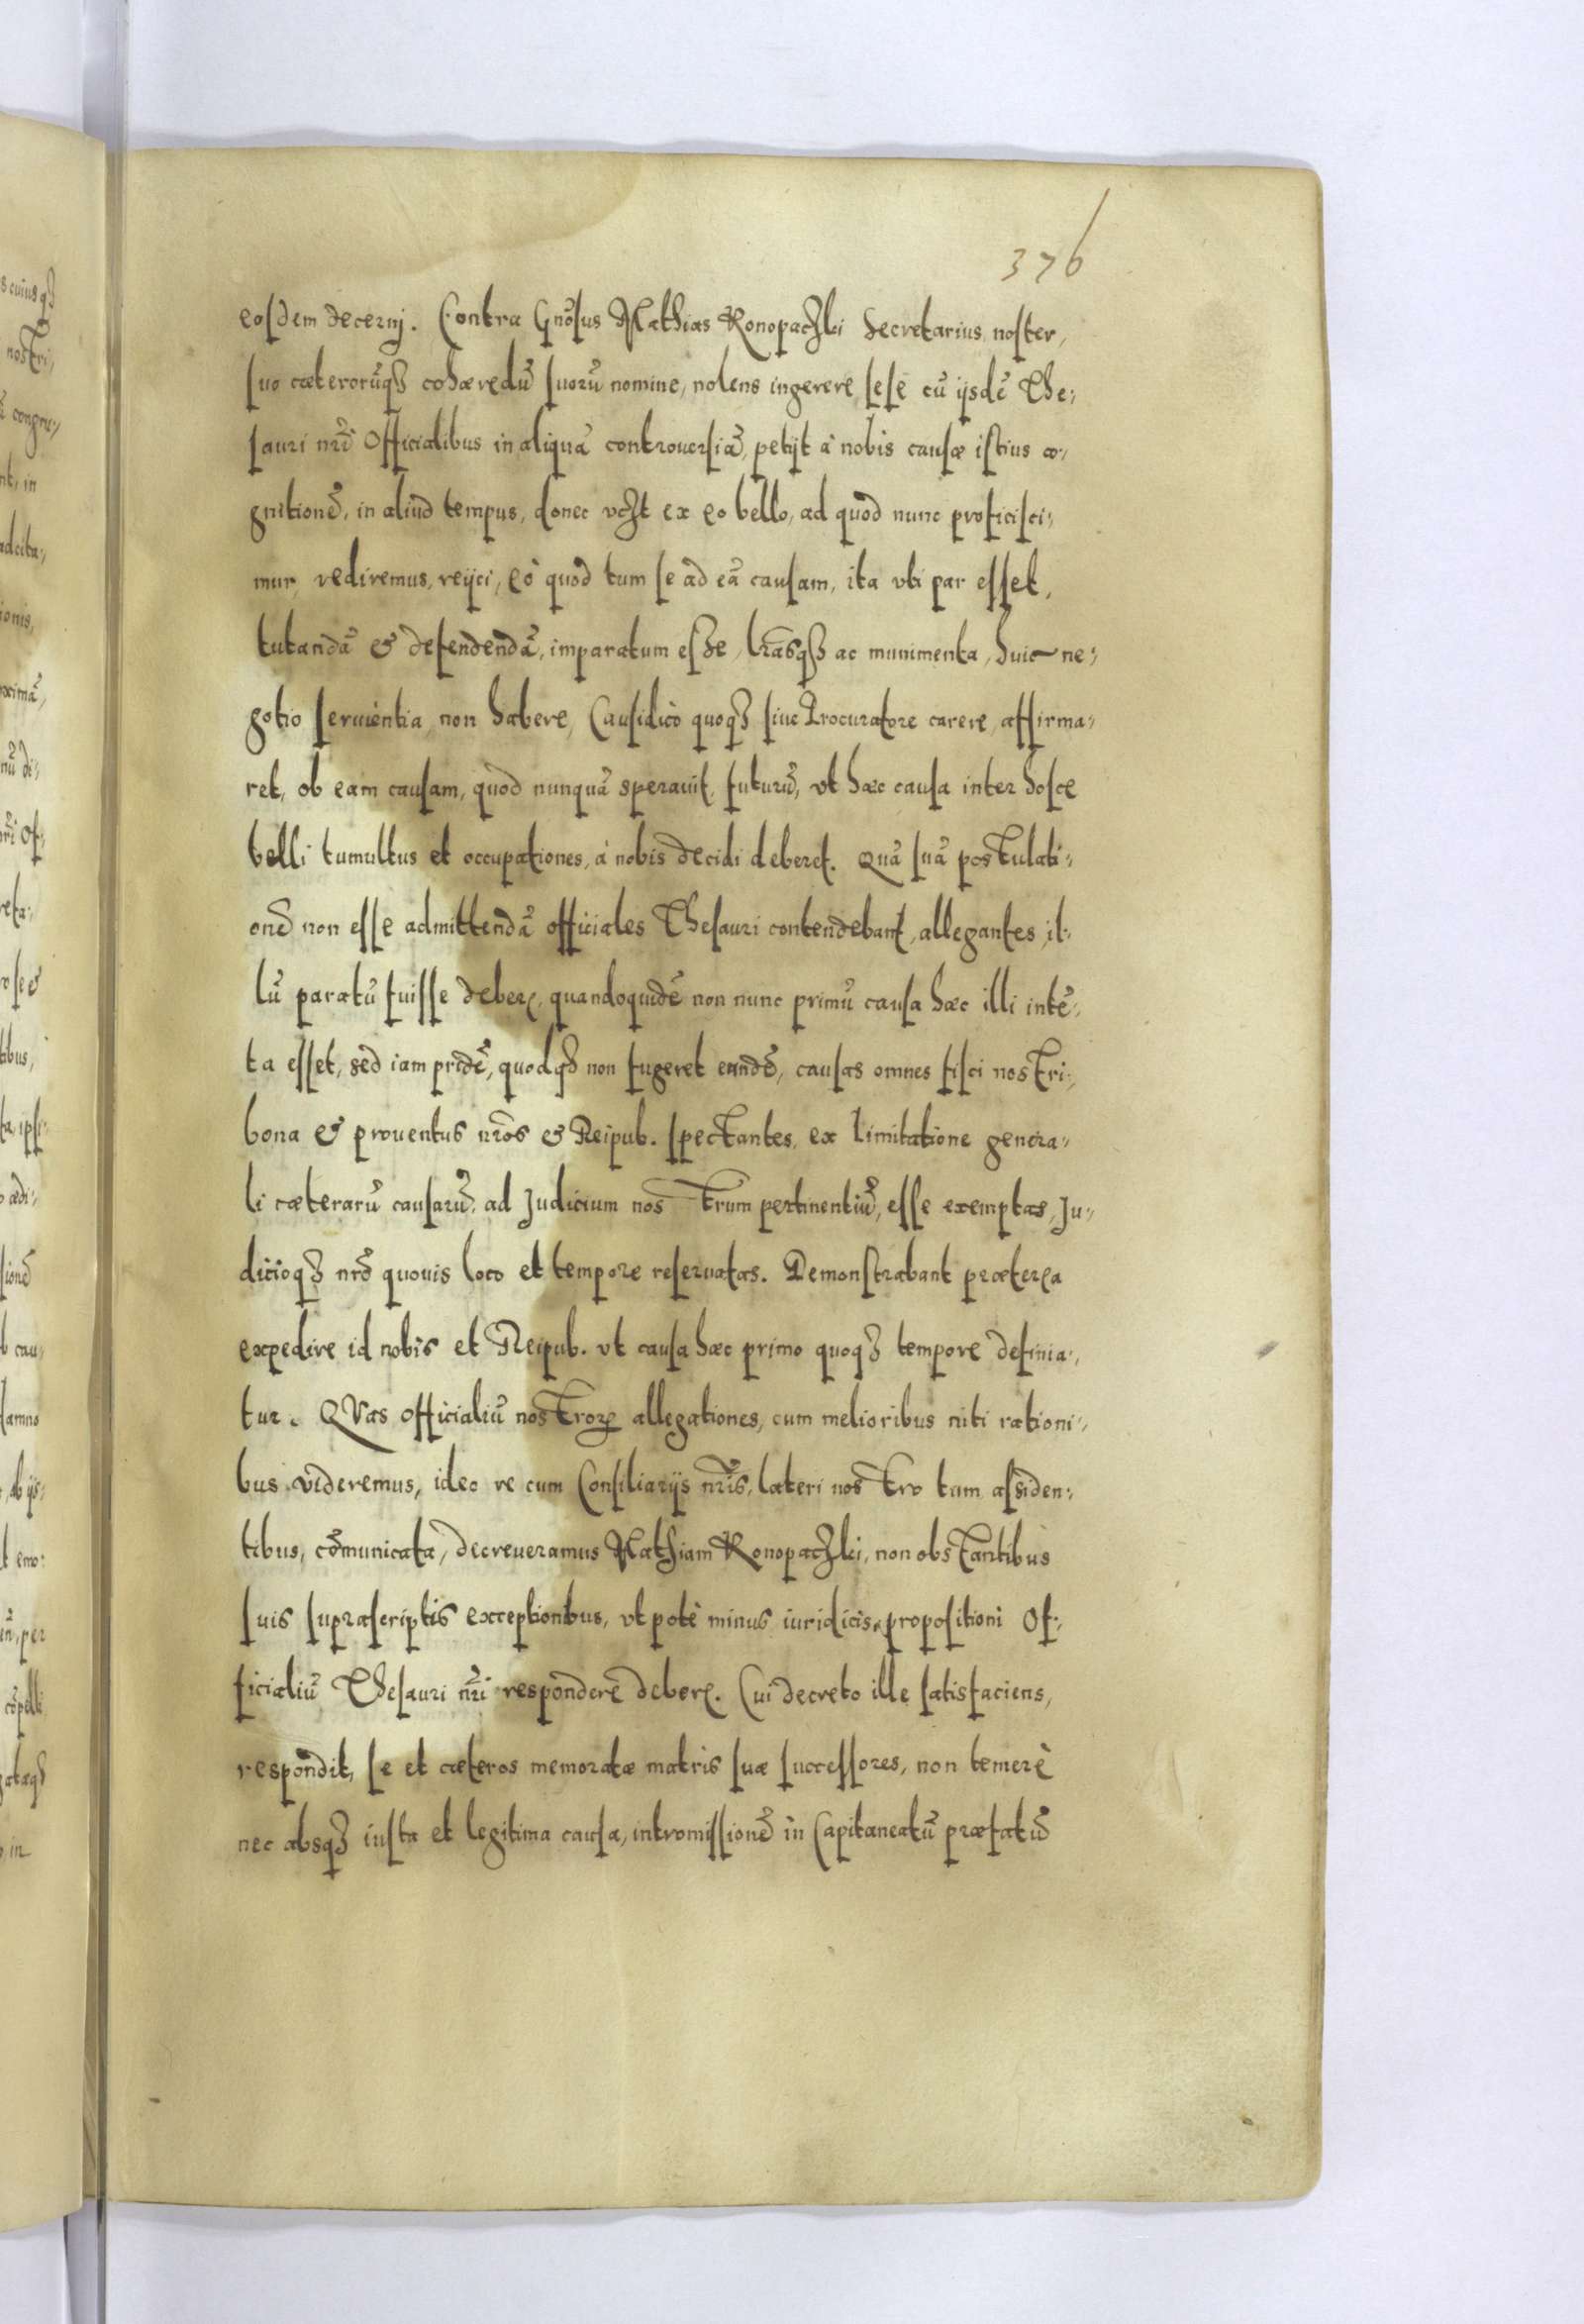 376
eosdem decernj. Contra Gnõsus Mathias Konopaczki Secretarius noster,
suo cæterorũq₃ cohæredũ suorũ nomine, nolens ingerere sese cũ ijsdẽ The:
sauri nr̃i Officialibus in aliquã controuersiã, petijt à nobis causæ istius co:
gnitionẽ, in aliud tempus, donec vczt ex eo bello, ad quod nunc proficisci:
mur, rediremus, reijci, eò quod tum se ad eã causam, ita vti par esset,
tutandã & defendendã, imparatum esse, lr̃asq₃ ac munimenta, huic ne:
gotio seruientia, non habere, Causidico quoq₃ siue Procuratore carere, affirma:
ret, ob eam causam, quod nunquã sperauit, futurũ, vt hæc causa inter hosce
belli tumultus et occupationes, à nobis decidi deberet. Quã suã postulati:
onẽ non esse admittendã officiales Thesauri contendebant, allegantes, il:
lũ paratũ fuisse debere, quandoquidẽ non nunc primũ causa hæc illi intẽ:
ta esset, sed iam pridẽ, quodq₃ non fugeret eundẽ, causas omnes fisci nostri,
bona & prouentus nr̃os & Reipub. spectantes, ex limitatione genera:
li cæterarũ causarũ, ad Judicium nostrum pertinentiũ, esse exemptas, Ju:
dicioq₃ nr̃o quouis loco et tempore reseruatas. Demonstrabant præterea
expedire id nobis et Reipub. vt causa hæc primo quoq₃ tempore definia:
tur. QVas officialiũ nostroꝝ allegationes, cum melioribus niti rationi:
bus videremus, ideo re cum Consiliarijs nr̃is, lateri nostro tum assiden:
tibus, cõmunicata, decreueramus Mathiam Konopaczki, non obstantibus
suis suprascriptis exceptionibus, vt potè minus iuridicis, propositioni Of:
ficialiũ Thesauri nr̃i respondere debere. Cui decreto ille satisfaciens,
respondit, se et cæteros memoratæ matris suæ successores, non temerè
nec absq₃ iusta et legitima causa, intromissionẽ in Capitaneatũ præfatũ